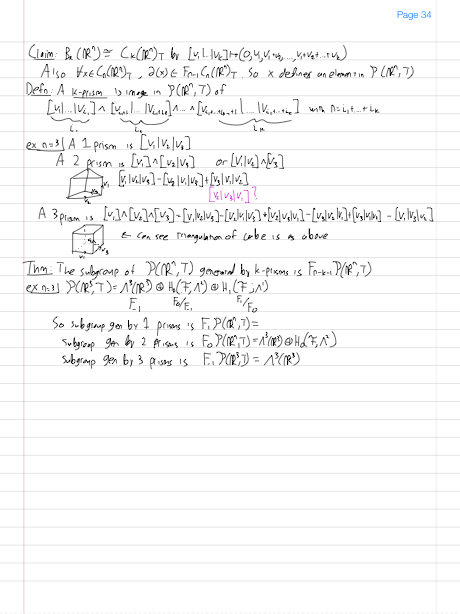 Page 34
Claim: Bₖ(ℝⁿ) ≅ Cₖ(ℝⁿ)_T by [v₁|…|vₖ] ↦ (0, v₁, v₁+v₂, …, v₁+v₂+…+vₖ)
Also ∀x∈Cₙ(ℝⁿ)_T, ∂(x) ∈ Fₙ₋₁Cₙ(ℝⁿ)_T. So x defines an element in P(ℝⁿ,T)
Defn: A k-prism is image in P(ℝⁿ,T) of
[v₁|…|v_{L₁}] ∧ [v_{L₁+1}|…|v_{L₁+L₂}] ∧ … ∧ [v_{L₁+…+L_{k-1}+1}|…|v_{L₁+…+Lₖ}] with n=L₁+…+Lₖ
L₁ L₂ Lₖ
ex n=3 A 1 prism is [v₁|v₂|v₃]
A 2 prism is [v₁]∧[v₂|v₃] or [v₁|v₂]∧[v₃]
[v₁|v₂|v₃]-[v₂|v₁|v₃]+[v₃|v₁|v₂]
[v₂|v₃|v₁]?
v₁ v₂ v₃
A 3 prism is [v₁]∧[v₂]∧[v₃] = [v₁|v₂|v₃]-[v₂|v₁|v₃]+[v₂|v₃|v₁]-[v₃|v₂|v₁]+[v₃|v₁|v₂]-[v₁|v₃|v₂]
← can see triangulation of cube is as above
Thm: The subgroup of P(ℝⁿ,T) generated by k-prisms is Fₙ₋ₖ₋₁P(ℝⁿ,T)
ex n=3 P(ℝ³,T) = Λ³(ℝ³) ⊕ H₀(F,Λ²) ⊕ H₁(F,Λ¹)
F₋₁ F₀/F₋₁ F₁/F₀
So subgroup gen by 1 prisms is F₁P(ℝ³,T) =
subgroup gen by 2 prisms is F₀P(ℝ³,T) = Λ³(ℝ³) ⊕ H₀(F,Λ²)
subgroup gen by 3 prisms is F₋₁P(ℝ³,T) = Λ³(ℝ³)